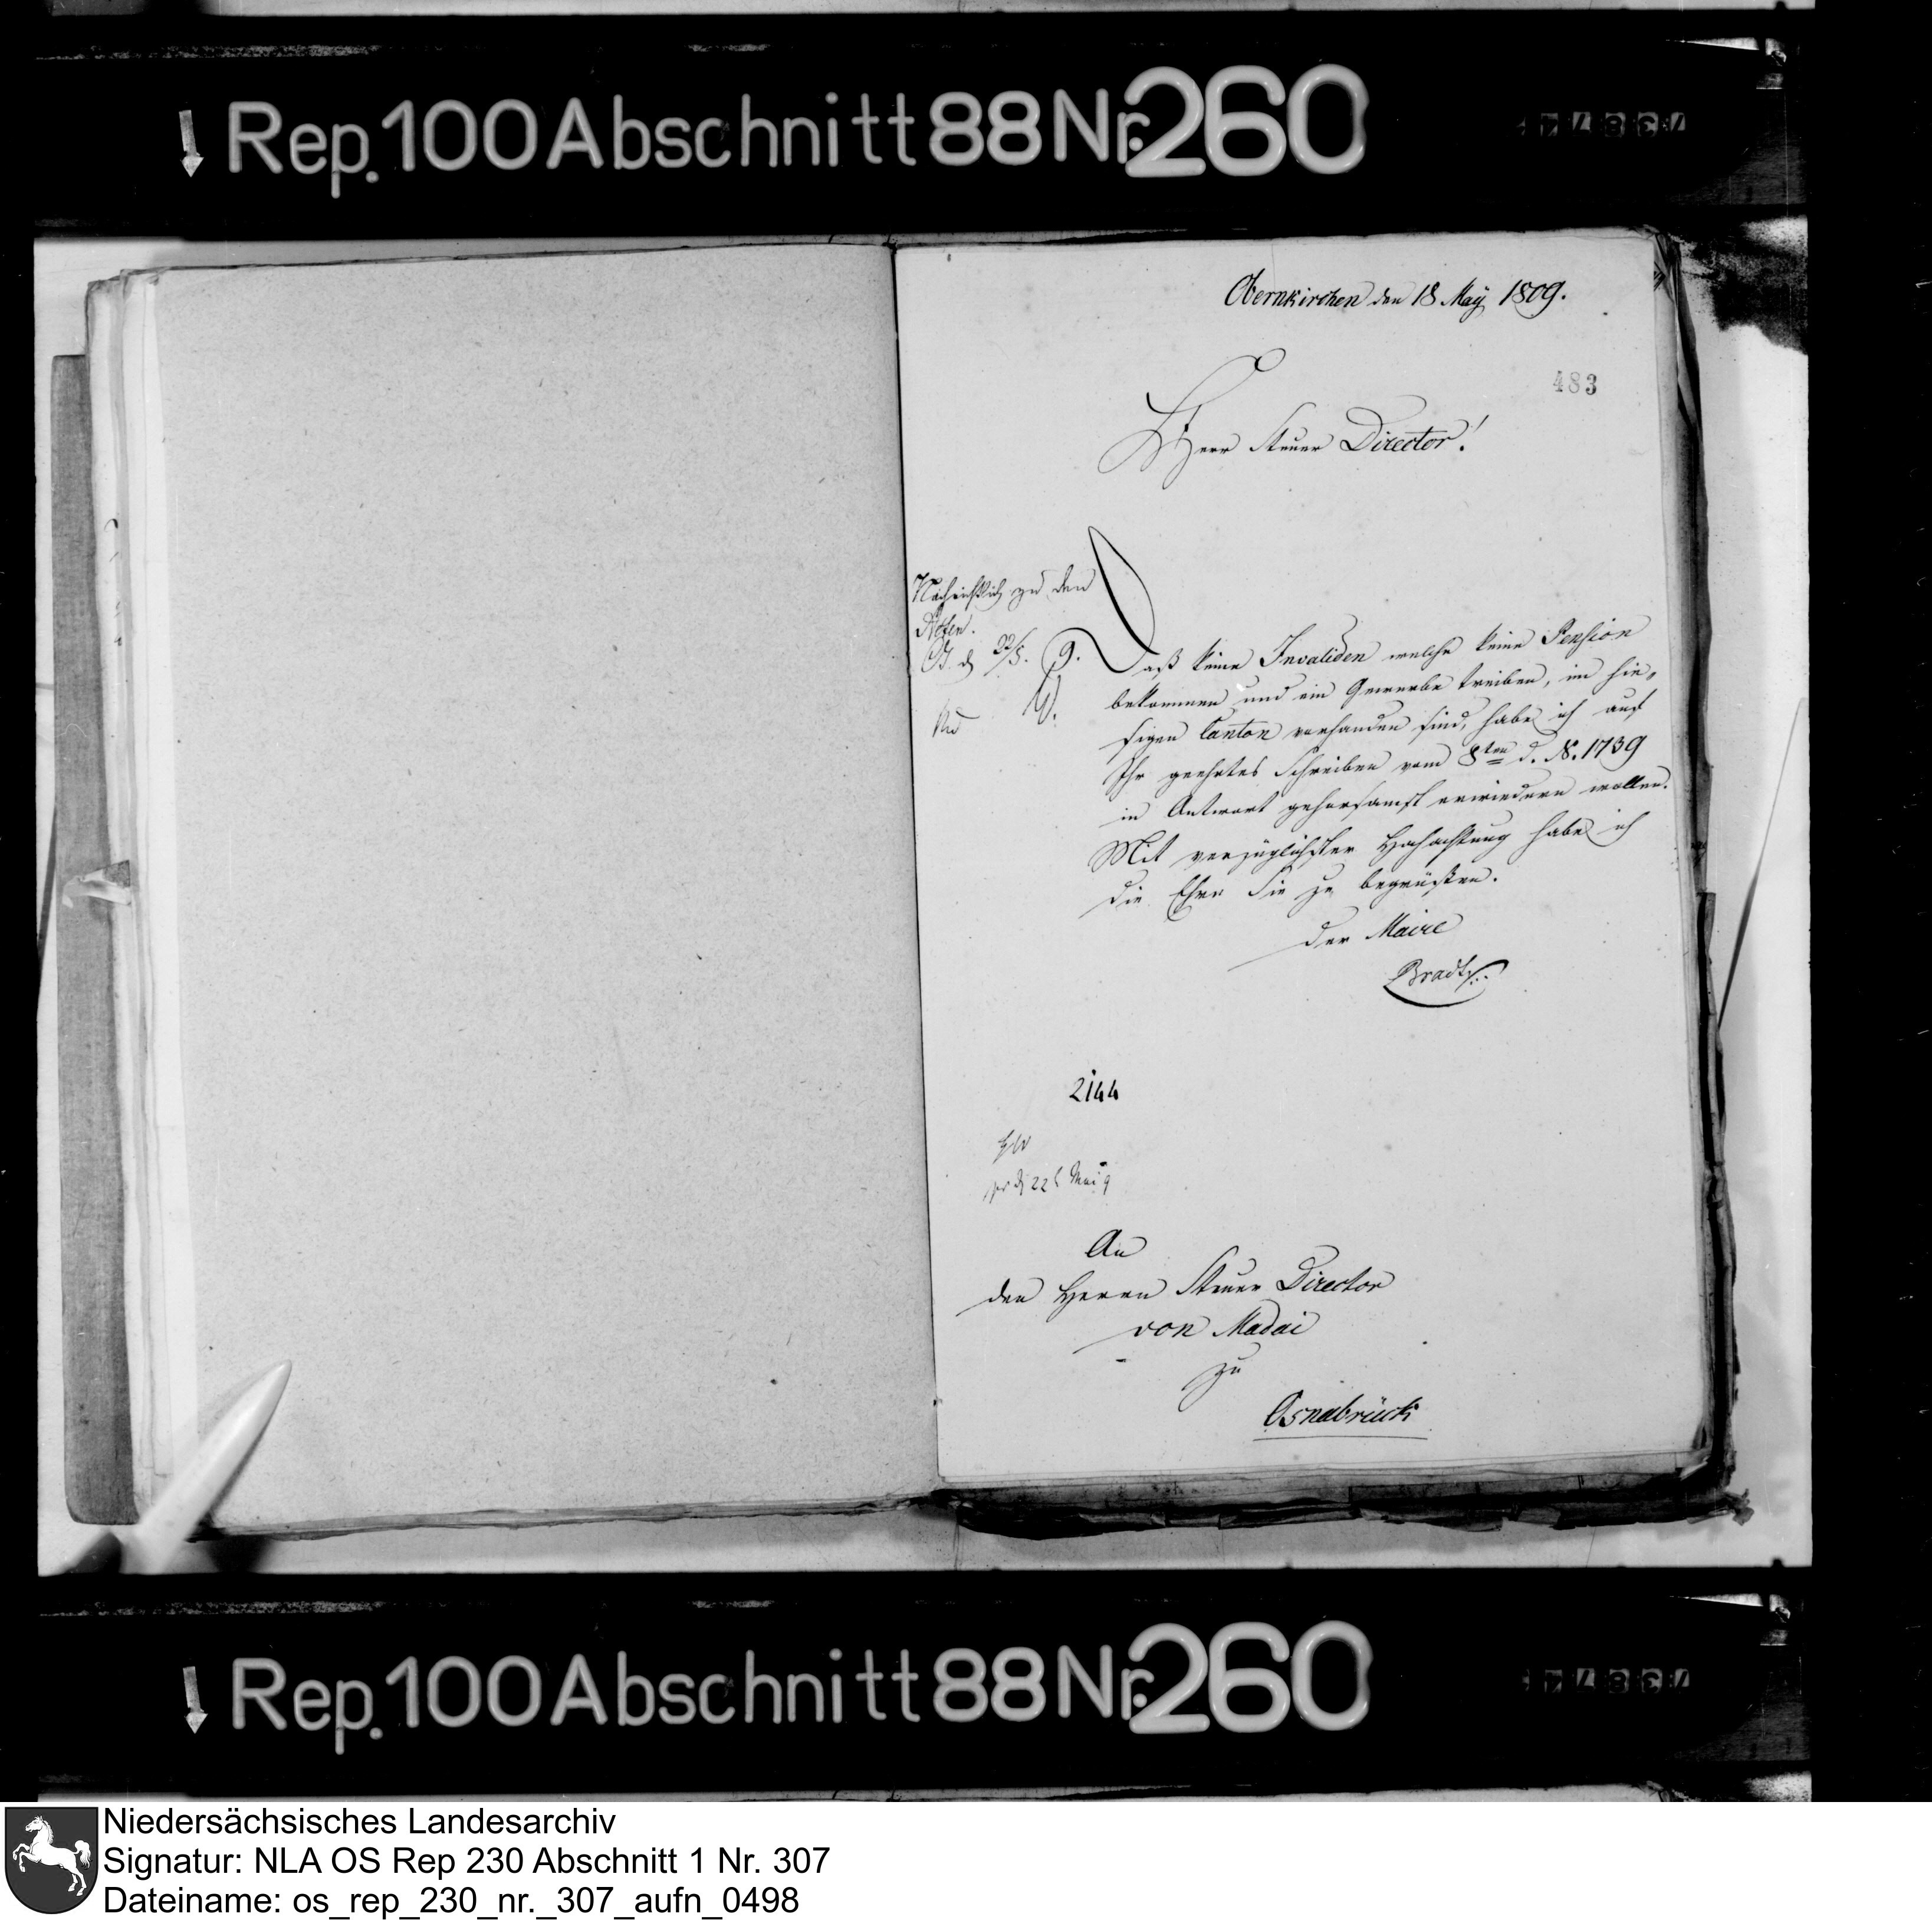 Rep. 100 Abschnitt 88 Nr. 260
73874
Obernkirchen den 18 May 1809.
483
Herr Steuer Director!
Nachrichtlich zu den
Acten.
O. d 22/5. 9.
Daß keine Invaliden welche keine Pension
bekommen und ein Gewerbe treiben, im hie-
sigen Canton vorhanden sind, habe ich auf
Ihr geehrtes Schreiben vom 8ten d. N. 1739
in Antwort gehorsamst erwiedern wollen.
Mit vorzüglichster Hochachtung habe ich
die Ehre Sie zu begrüßen.
der Maire
2144
pr d 22 Mai 9
An
den Herrn Steuer Director
von Madai
zu
Osnabrück
Rep. 100 Abschnitt 88 Nr. 260
73874
Niedersächsisches Landesarchiv
Signatur: NLA OS Rep 230 Abschnitt 1 Nr. 307
Dateiname: os_rep_230_nr._307_aufn_0498